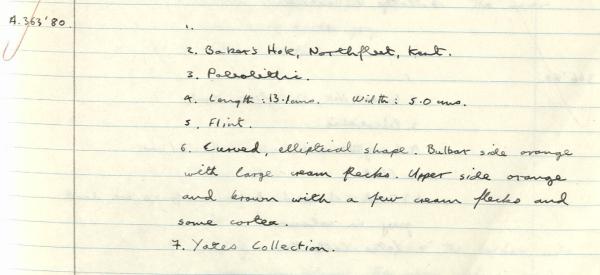 A.363'80.
1.
2. Baker's Hole, Northfleet, Kent.
3. Paleolithic.
4. Length: 13.1cms. Width: 5.0 cms.
5. Flint.
6. Curved, elliptical shape. Bulbar side orange
with large cream flecks. Upper side orange
and brown with a few cream flecks and
some cortex.
7. Yates Collection.